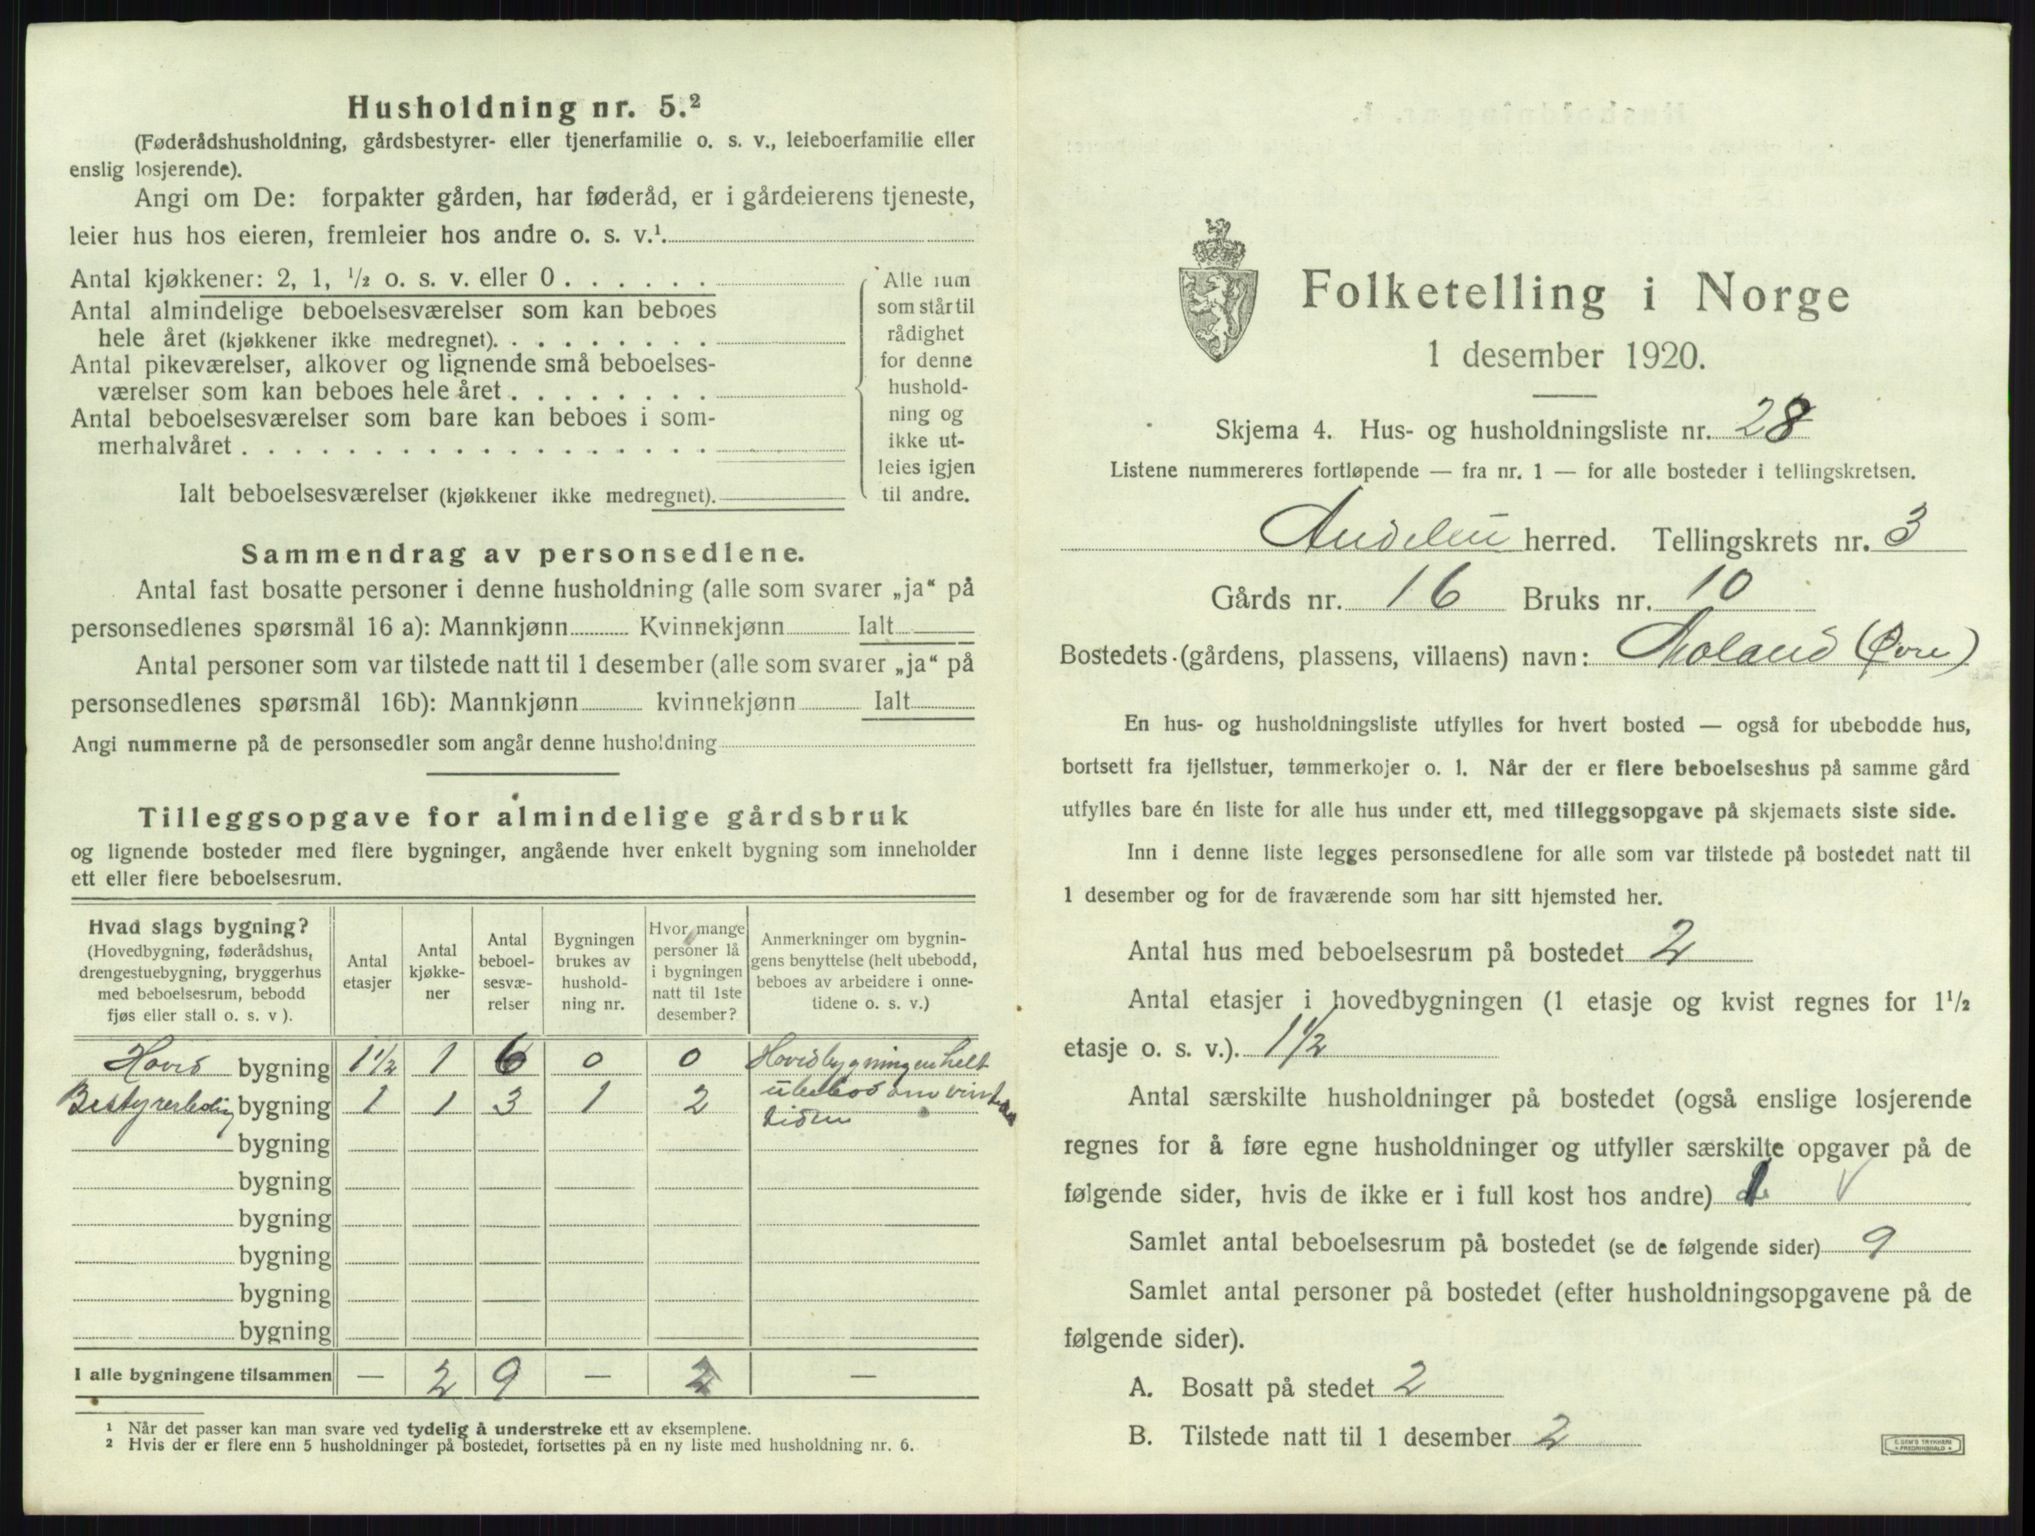 Husholdning nr. 5.²
(Føderådshusholdning, gårdsbestyrer- eller tjenerfamilie o. s. v., leieboerfamilie eller
enslig losjerende).
Angi om De: forpakter gården, har føderåd, er i gårdeierens tjeneste,
leier hus hos eieren, fremleier hos andre o. s. v.¹
Antal kjøkkener: 2, 1, ½ o. s. v. eller 0
Antal almindelige beboelsesværelser som kan beboes
hele året (kjøkkener ikke medregnet).
Antal pikeværelser, alkover og lignende små beboelses-
værelser som kan beboes hele året
Antal beboelsesværelser som bare kan beboes i som-
merhalvåret
Ialt beboelsesværelser (kjøkkener ikke medregnet).
Alle rum
som står til
rådighet
for denne
hushold-
ning og
ikke ut-
leies igjen
til andre.
Sammendrag av personsedlene.
Antal fast bosatte personer i denne husholdning (alle som svarer „ja“ på
personsedlenes spørsmål 16 a): Mannkjønn Kvinnekjønn Ialt
Antal personer som var tilstede natt til 1 desember (alle som svarer „ja“ på
personsedlenes spørsmål 16b): Mannkjønn kvinnekjønn Ialt
Angi nummerne på de personsedler som angår denne husholdning
Tilleggsopgave for almindelige gårdsbruk
og lignende bosteder med flere bygninger, angående hver enkelt bygning som inneholder
ett eller flere beboelsesrum.
Hvad slags bygning?
(Hovedbygning, føderådshus,
drengestuebygning, bryggerhus
med beboelsesrum, bebodd
fjøs eller stall o. s. v ).
Antal
etasjer
Antal
kjøkke-
ner
Antal
beboel-
sesvæ-
relser
Bygningen
brukes av
hushold-
ning nr.
Hvor mange
personer lå
i bygningen
natt til 1ste
desember?
Anmerkninger om bygnin-
gens benyttelse (helt ubebodd,
beboes av arbeidere i onne-
tidene o. s. v.)
Hoved bygning 1½ 1 6 0 0 Hovedbygningen helt
Bestyrerbolig bygning 1 1 3 1 2 ubebod om vinter
tiden
bygning
bygning
bygning
bygning
bygning
bygning
I alle bygningene tilsammen — 2 9 — 2 —
¹ Når det passer kan man svare ved tydelig å understreke ett av eksemplene.
² Hvis der er flere enn 5 husholdninger på bostedet, fortsettes på en ny liste med husholdning nr. 6.
Folketelling i Norge
1 desember 1920.
Skjema 4. Hus- og husholdningsliste nr. 28
Listene nummereres fortløpende — fra nr. 1 — for alle bosteder i tellingskretsen.
herred. Tellingskrets nr. 3
Gårds nr. 16 Bruks nr. 10
Bostedets (gårdens, plassens, villaens) navn: (Øvre)
En hus- og husholdningsliste utfylles for hvert bosted — også for ubebodde hus,
bortsett fra fjellstuer, tømmerkojer o. l. Når der er flere beboelseshus på samme gård
utfylles bare én liste for alle hus under ett, med tilleggsopgave på skjemaets siste side.
Inn i denne liste legges personsedlene for alle som var tilstede på bostedet natt til
1 desember og for de fraværende som har sitt hjemsted her.
Antal hus med beboelsesrum på bostedet 2
Antal etasjer i hovedbygningen (1 etasje og kvist regnes for 1½
etasje o. s. v.). 1½
Antal særskilte husholdninger på bostedet (også enslige losjerende
regnes for å føre egne husholdninger og utfyller særskilte opgaver på de
følgende sider, hvis de ikke er i full kost hos andre) 1 √
Samlet antal beboelsesrum på bostedet (se de følgende sider) 9
Samlet antal personer på bostedet (efter husholdningsopgavene på de
følgende sider).
A. Bosatt på stedet 2
B. Tilstede natt til 1 desember 2